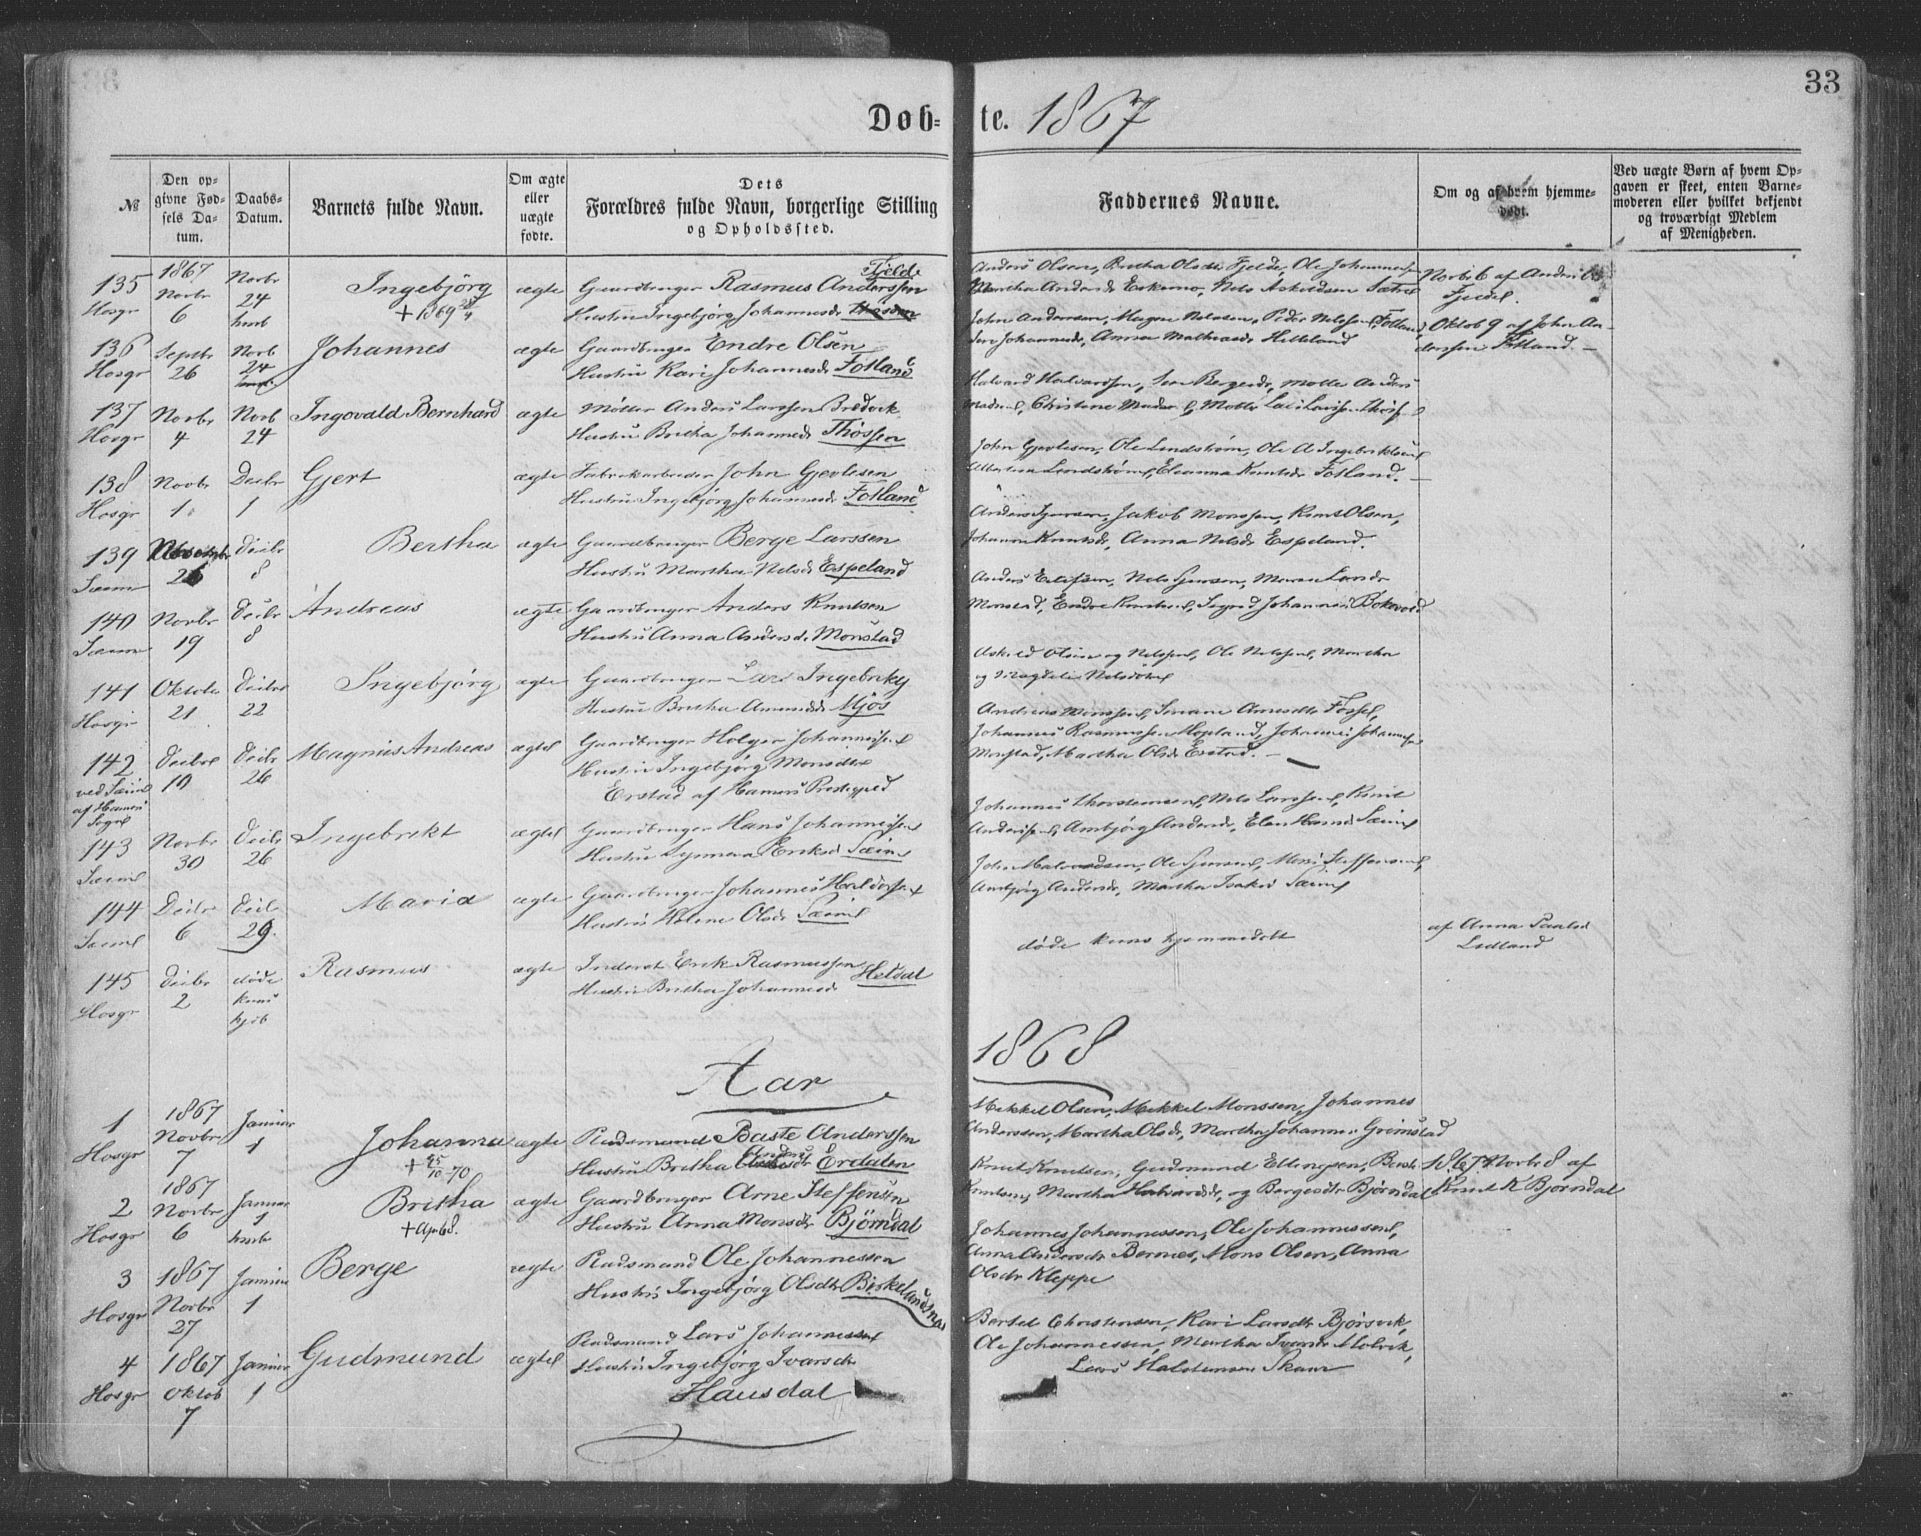 33
Døb- te. 1867
№
Den opgivne Fødsels Datum.
Daabs-Datum.
Barnets fulde Navn.
Om ægte eller uægte fødte.
Dets Forældres fulde Navn, borgerlige Stilling og Opholdssted.
Faddernes Navne.
Om og af hvem hjemmedøbt.
Ved uægte Børn af hvem Opgaven er skeet, enten Barnemoderen eller hvilket bekjendt og troværdigt Medlem af Menigheden.
135 Hosgr 1867 Novbr 6 Novbr 24 hmb Ingebjörg + 1869 ægte
Gaardbruger Rasmus Anderssen Fjelde
Hustru Ingebjörg Johannesdr
Anders Olsen, Britha Olsdr Fjelde, Ole Johannessen
Martha Andersdr Eskemo, Nils Askildsen Sætre
Novbr 6 af Anders Ols
Fjelde.
136 Hosgr Septbr 26 Novb 24 Johannes ægte
Gaardbruger Endre Olsen
Hustru Kari Johannesdr Fotland
John Anderssen, Magne Nilssen, Peder Nilssen Fotland,
Johannesdr, Anna Mathiasdr Helleland
Oktob 9 af John An-
derssen Fotland.
137 Hosgr Novbr 4 Novb 24 Ingovald Bernhard ægte
Møller Anders Larssen Bredvik
Hustru Britha Johannesdr Thøssen
Halvard Halvardsen, Bergesdr, Møller Anders
Madsen, Christine
138 Hosgr Novbr 1 Decbr 1 Gjert ægte
Fabrikarbeider John Gjertsen
Hustru Ingebjörg Johannesdr Fotland
John Gjertsen, Ole Lindström, Ole A Ingebriktsen
Albertina Lindström, Eleanna Knutsdr Fotland.
139 Sæim 26 Decbr 8 Bertha ægte
Gaardbruger Berge Larssen
Hustru Martha Nilsdr Espeland
Anders, Jakob Monssen, Knut Olsen,
Johanna Knutsdr, Anna Nilsdr Espeland.
140 Sæim Novbr 19 Decbr 8 Andreas ægte
Gaardbruger Anders Knutsen
Hustru Anna Andersdr Monstad
Anders Ellifsen, Nils
Monstad, Endre Knutsen, Johannes
141 Hosgr Oktobr 21 Decbr 22 Ingebjörg ægte
Gaardbruger Lars Ingebrikts
Hustru Britha Amundsdr Mjös
Askild Olsen og Nilssen, Ole Nilssen, Martha
og Magdeli Nilsdötre
142 ved Sæim af Hamers Sogn Decbr 10 Decbr 26 Magnus Andreas ægte
Gaardbruger Holger Johannessen
Hustru Ingebjörg Monsdtr
Erstad af Hamers Prestegjeld
Andreas Monssen, Amundsdtr Fosse,
Johannes Rasmussen Hopland, Johannes Johannessen
Monstad, Martha Olsdr Erstad.
143 Sæim Novbr 30 Decbr 26 Ingebrikt ægte
Gaardbruger Hans Johannessen
Hustru Synneva Eriksd Sæim
Johannes Thorstensen, Nils Larssen, Knut
Anderssen, Ambjörg Andersdr, Elen Hansd Sæim
144 Sæim Decbr 6 Decbr 29. Maria ægte
Gaardbruger Johannes Haldorsen
Hustru Helene Olsdr Sæim
John, Ole, Mons Steffensen,
Ambjörg Andersdr, Martha Isaksd Sæim
145 Hosgr Decbr 2 döde kuns hjdb Rasmus ægte
Inderst Erik Rasmussen
Hustru Britha Johannesdr Helsdal
döde kuns hjemmedöbt
af Anna Paalsd
Ledland
Aar 1868
1 Hosgr 1867 Novbr 7 Januar 1 Johanna + 25/10 70 ægte
Pladsmand Baste Anderssen
Hustru Britha Erdalen
Mikkel Olsen, Mikkel Monssen, Johannes
Anderssen, Martha Olsdr, Martha Johannes Grimstad
2 Hosgr 1867 Novbr 6 Januar 1 hmb Britha + Apr 68. ægte
Gaardbruger Arne Steffensen
Hustru Anna Monsdr Bjørndal
Knut Knutsen, Gudmund Ellingsen, Berit
Knutsen, Martha Halvardsdr, og Bergesdtr Bjørndal
1867 Novbr 8 af
Knut K Bjorndal
3 Hosgr 1867 Novbr 27 Januar 1 Berge ægte
Pladsmand Ole Johannessen
Hustru Ingebjörg Olsdtr Birkelandsnes
Johannes Johannessen, Ole Johannessen,
Anna Andersdr Bernes, Mons Olsen, Anna
Olsdr Kleppe
4 Hosgr 1867 Oktob 7 Januar 1 Gudmund ægte
Pladsmand Lars Johannessen
Hustru Ingebjörg Ivarsdr
Hausdal
Bertel Christensen, Kari Larsdtr Bjørsvik,
Ole Johannessen, Martha Ivarsdr Molvik,
Lars Haldorsen Skaar